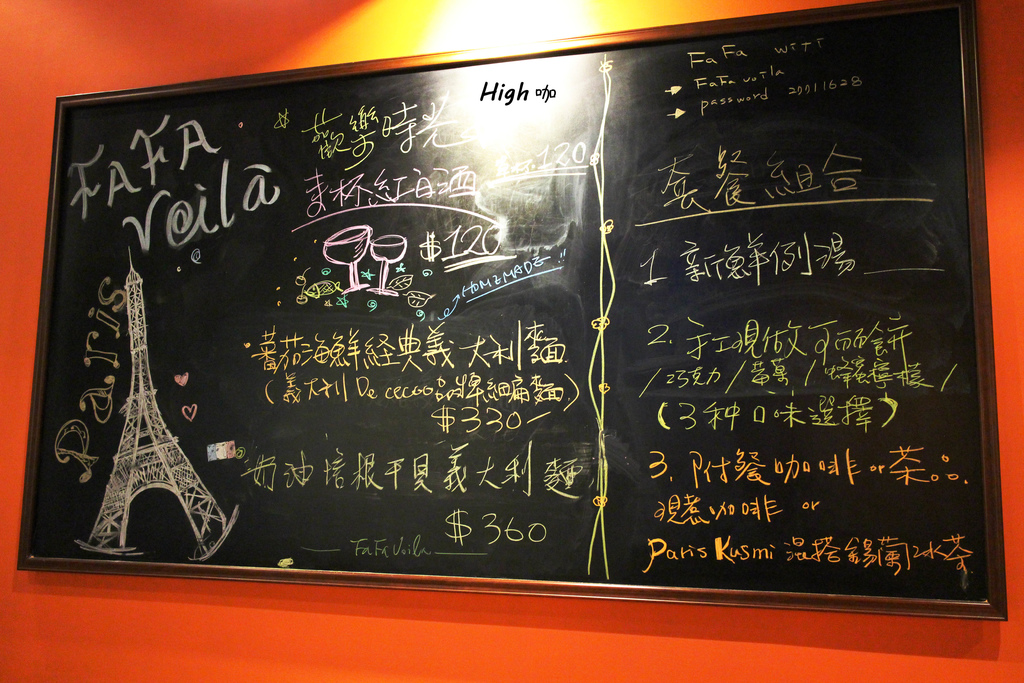 FAFA
Voilà
Paris
High 咖
歡樂時光
乾杯紅白酒 單杯120
$120
HOMEMADE
番茄海鮮經典義大利麵
(義大利 De cecco品牌細扁麵)
$330
奶油培根干貝義大利麵
$360
FaFaVoila
FaFa wifi
FaFa voila
password 29911628
套餐組合
1. 新鮮例湯
2. 手工現做可麗餅
/巧克力/藍莓/蜂蜜檸檬/
(3种口味選擇)
3. 附餐咖啡 or 茶品.
現煮咖啡 or
Paris Kusmi 混搭錫蘭冰茶